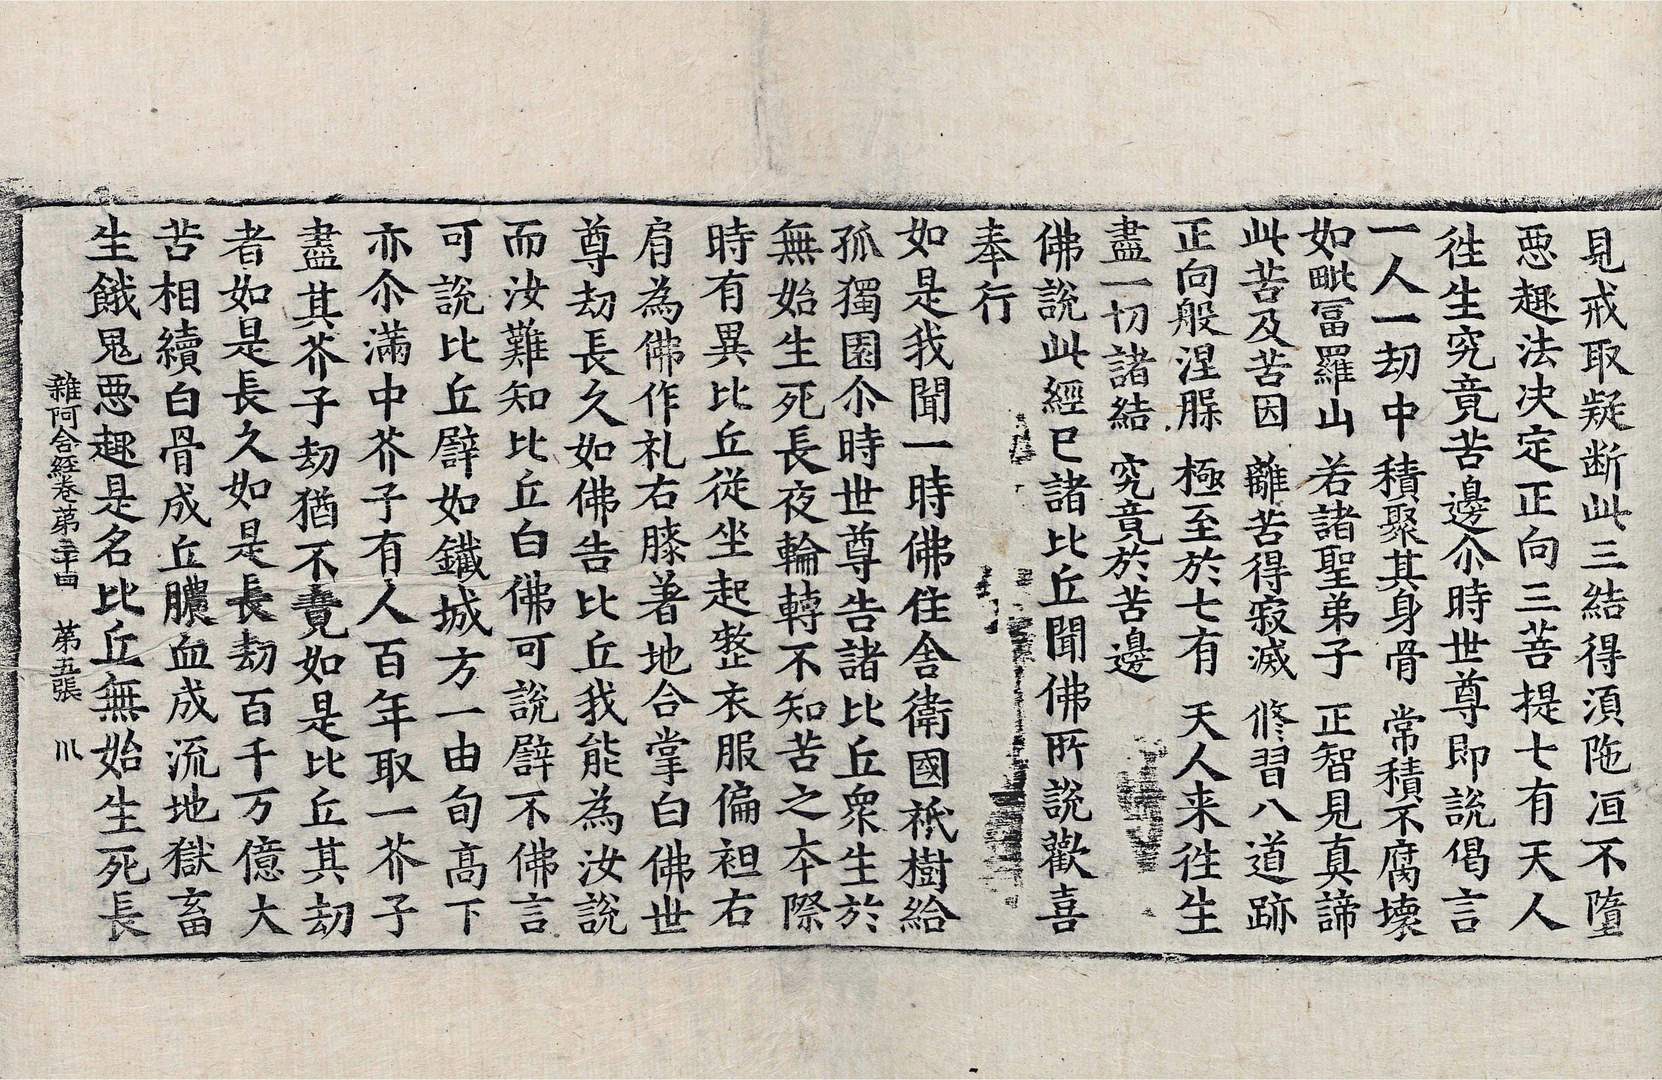 見戒取疑断此三結得湏陁洹不墮
惡趣法决定正向三菩提七有天人
徃生究竟苦邊尒時世尊即說偈言
一人一劫中 積聚其身骨 常積不腐壞
如毗冨羅山 若諸聖弟子 正智見真諦
此苦及苦因 離苦得寂滅 修習八道跡
正向般涅槃 極至於七有 天人来徃生
盡一切諸結 究竟於苦邊
佛說此經已諸比丘聞佛所說歡喜
奉行
如是我聞一時佛住舍衛國祇樹給
孤獨園尒時世尊告諸比丘衆生於
無始生死長夜輪轉不知苦之本際
時有異比丘從坐起整衣服偏袒右
肩為佛作礼右膝著地合掌白佛世
尊劫長久如佛告比丘我能為汝說
而汝難知比丘白佛可說譬不佛言
可說比丘譬如鐵城方一由旬高下
亦尒滿中芥子有人百年取一芥子
盡其芥子劫猶不竟如是比丘其劫
者如是長久如是長劫百千万億大
苦相續白骨成丘膿血成流地獄畜
生餓鬼惡趣是名比丘無始生死長
雜阿含經卷第三十四 第五張 川